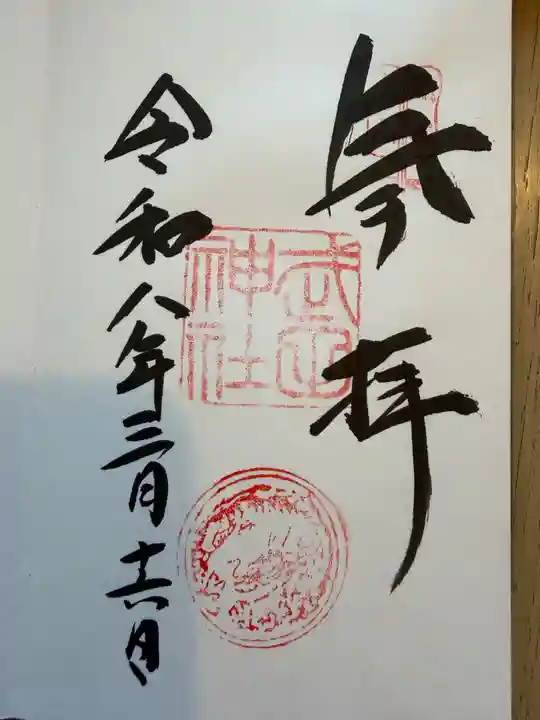 参拝
武正
神社
令和八年三月十六日